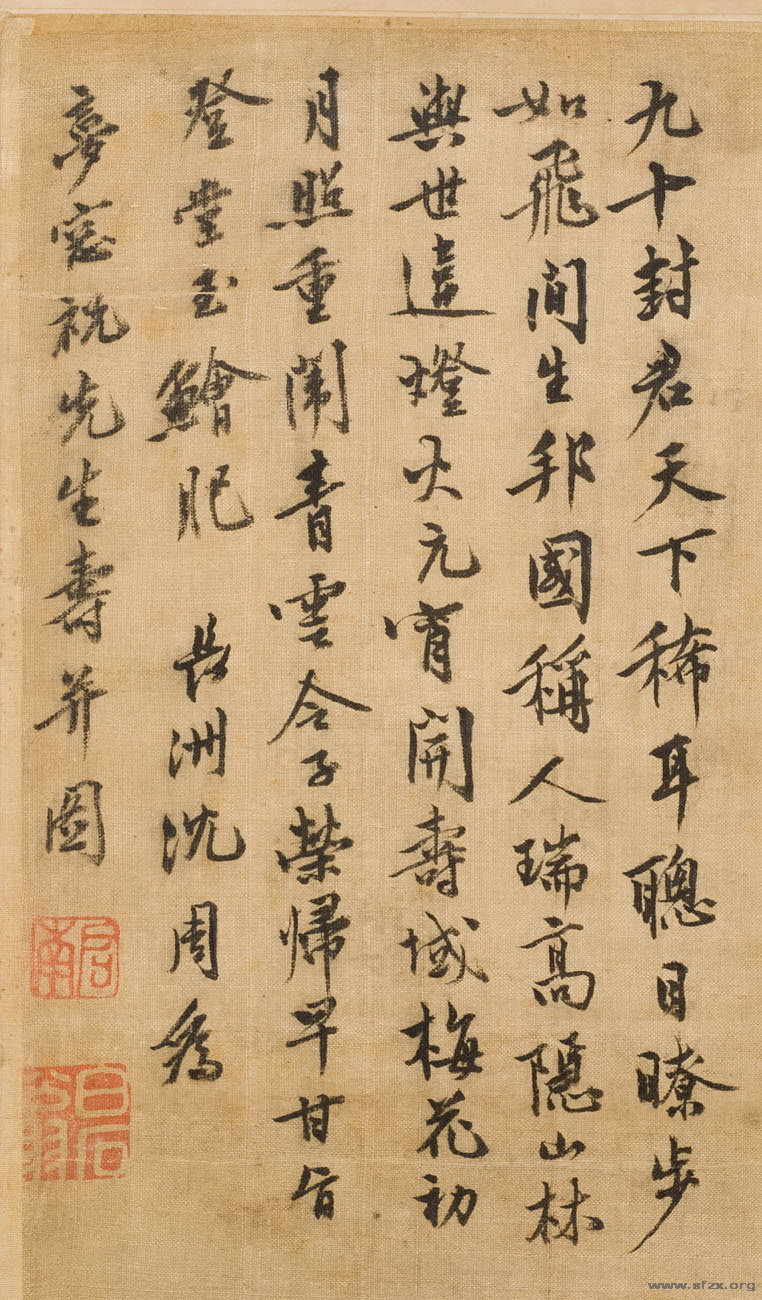 九十封君天下稀耳聰目瞭步
如飛間生邦國稱人瑞高隱山林
與世違燈火元宵開壽域梅花初
月照重闈青雲令子榮歸早甘旨
登堂玉鱠肥 長洲沈周為
夢窓祝先生壽并圖
啟南
白石
www.sfzx.org